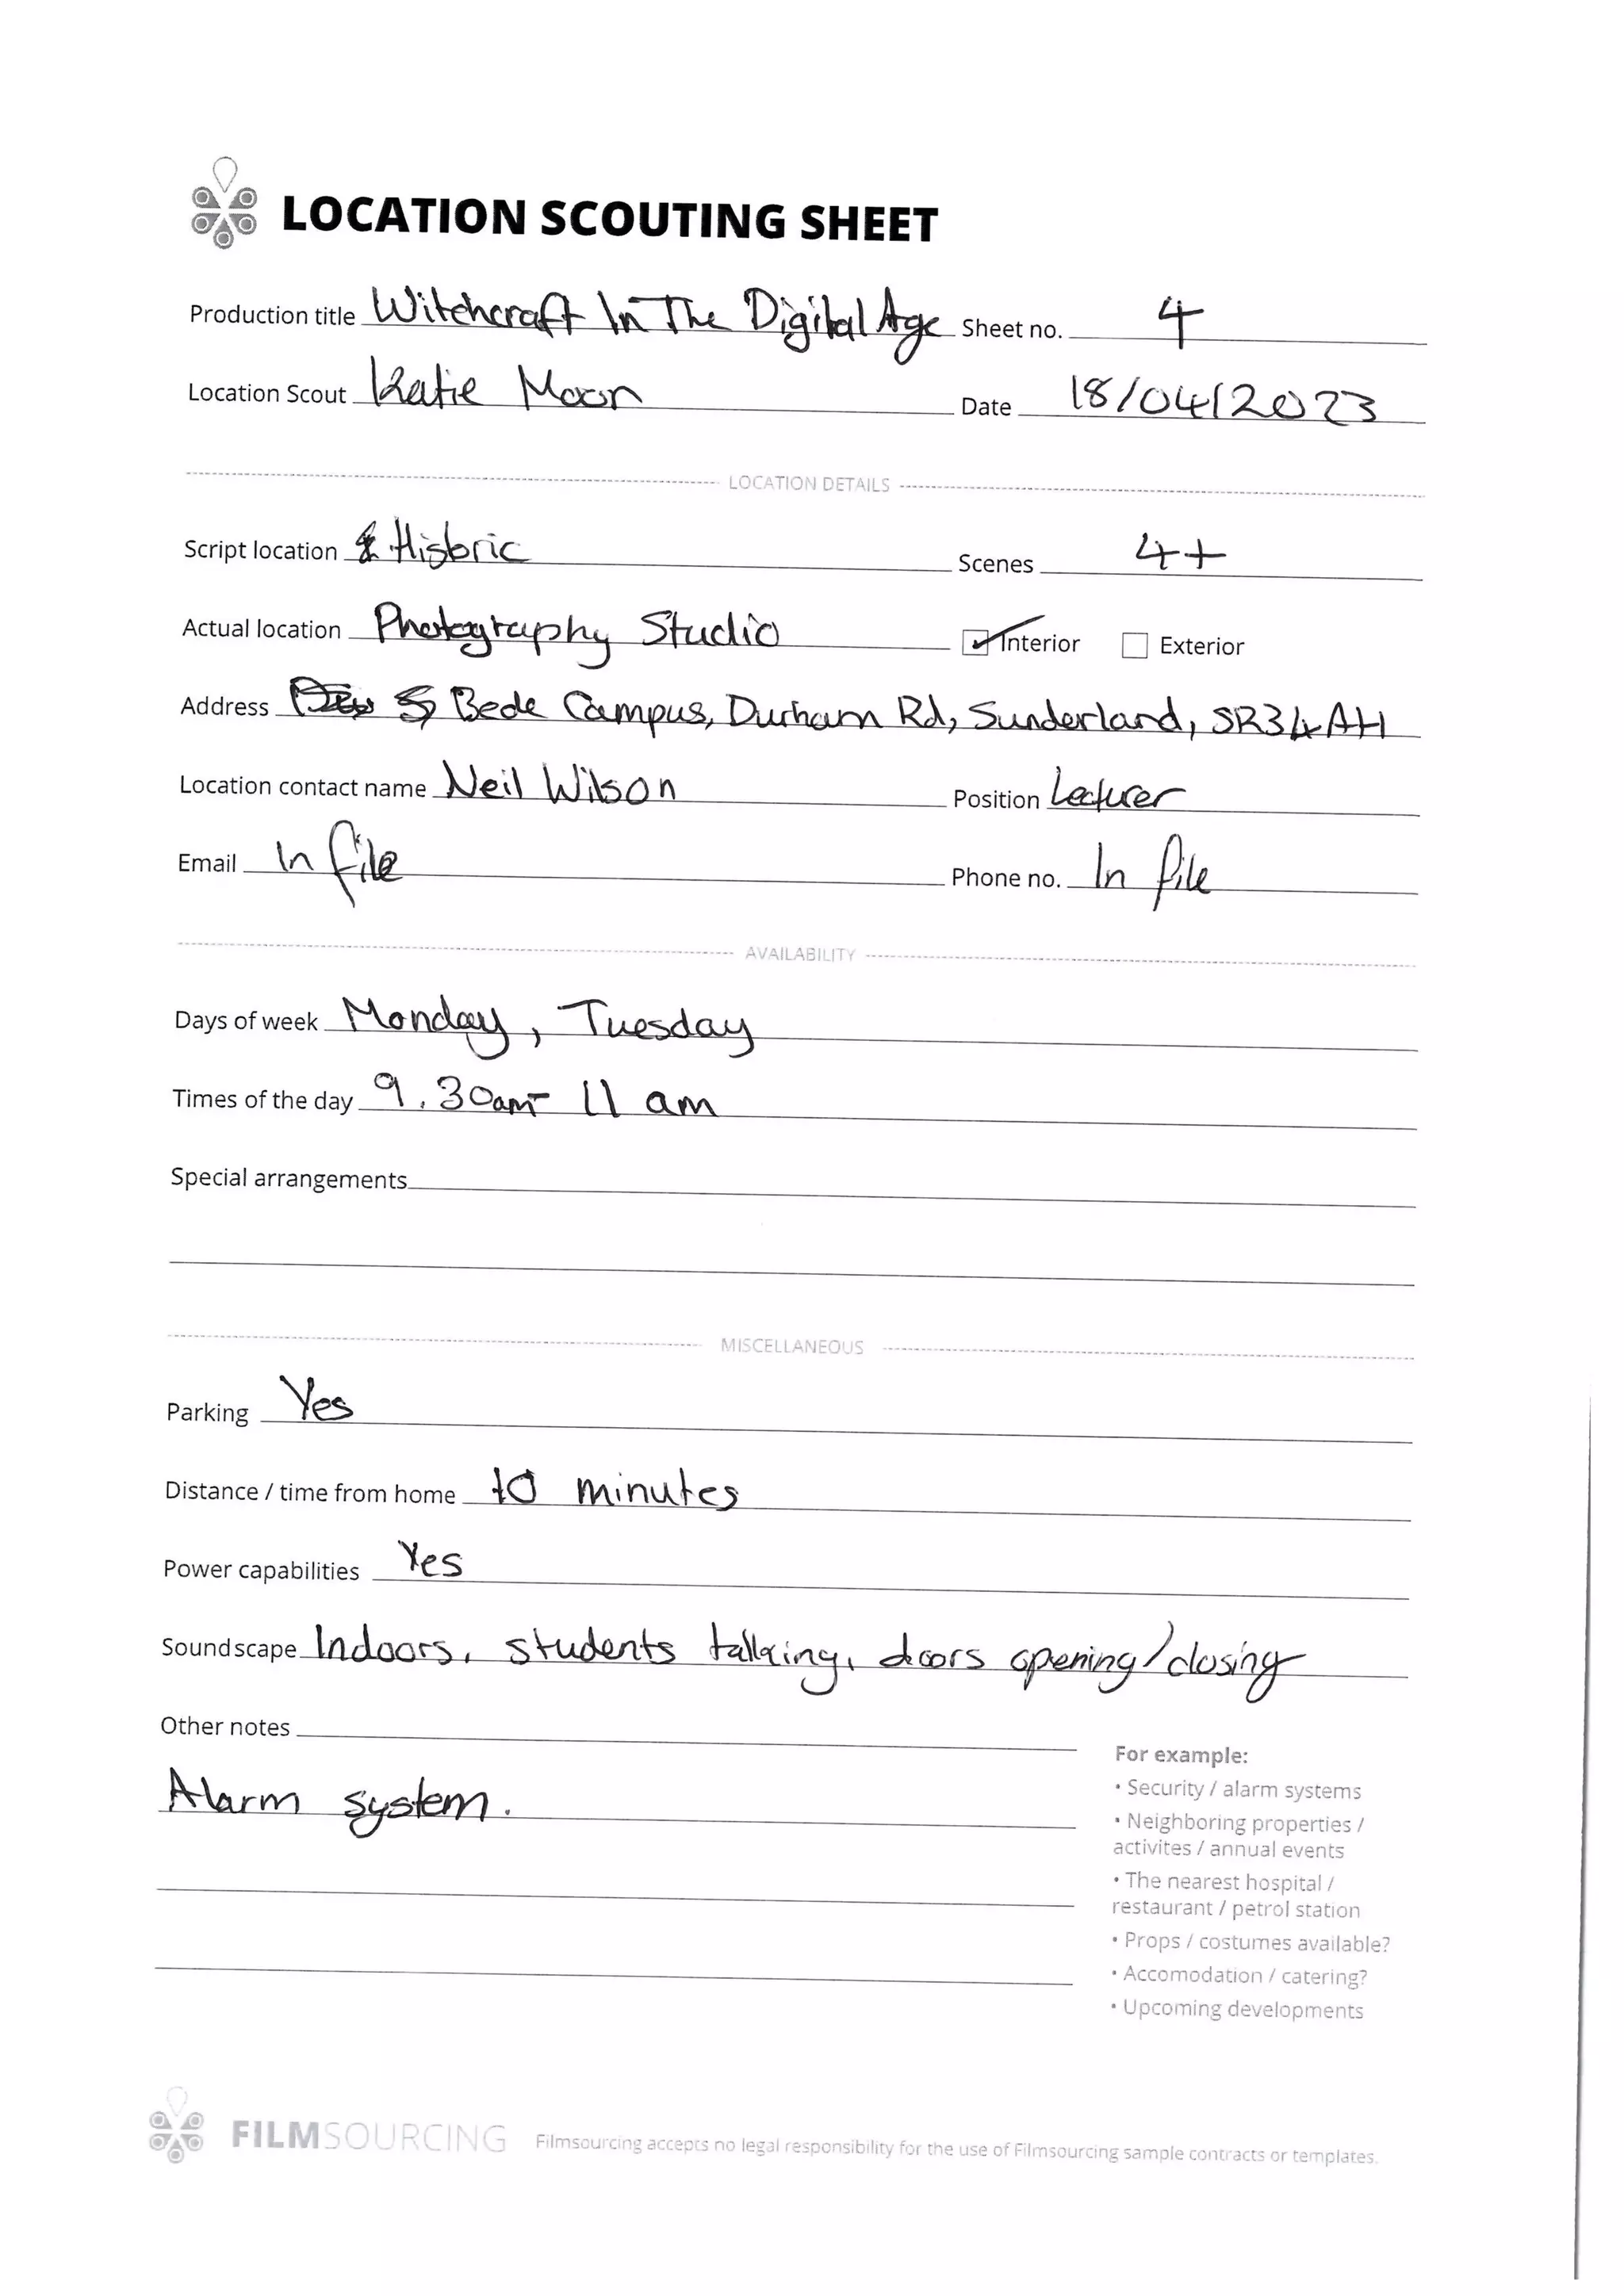 LOCATION SCOUTING SHEET
Production title Witchcraft In The Digital Age Sheet no. 4
Location Scout Katie Moon Date 18/04/2023
LOCATION DETAILS
Script location Historic Scenes 4+
Actual location Photography Studio Interior Exterior
Address Bede Campus, Durham Rd, Sunderland, SR34AH
Location contact name Neil Wilson Position Lecturer
Email In file Phone no. In file
AVAILABILITY
Days of week Monday, Tuesday
Times of the day 9.30am- 11 am
Special arrangements
MISCELLANEOUS
Parking Yes
Distance / time from home 10 minutes
Power capabilities Yes
Soundscape Indoors, students talking, doors opening/closing
Other notes
Alarm system.
For example:
• Security / alarm systems
• Neighboring properties /
activites / annual events
• The nearest hospital /
restaurant / petrol station
• Props / costumes available?
• Accomodation / catering?
• Upcoming developments
FILMSOURCING Filmsourcing accepts no legal responsibility for the use of Filmsourcing sample contracts or templates.